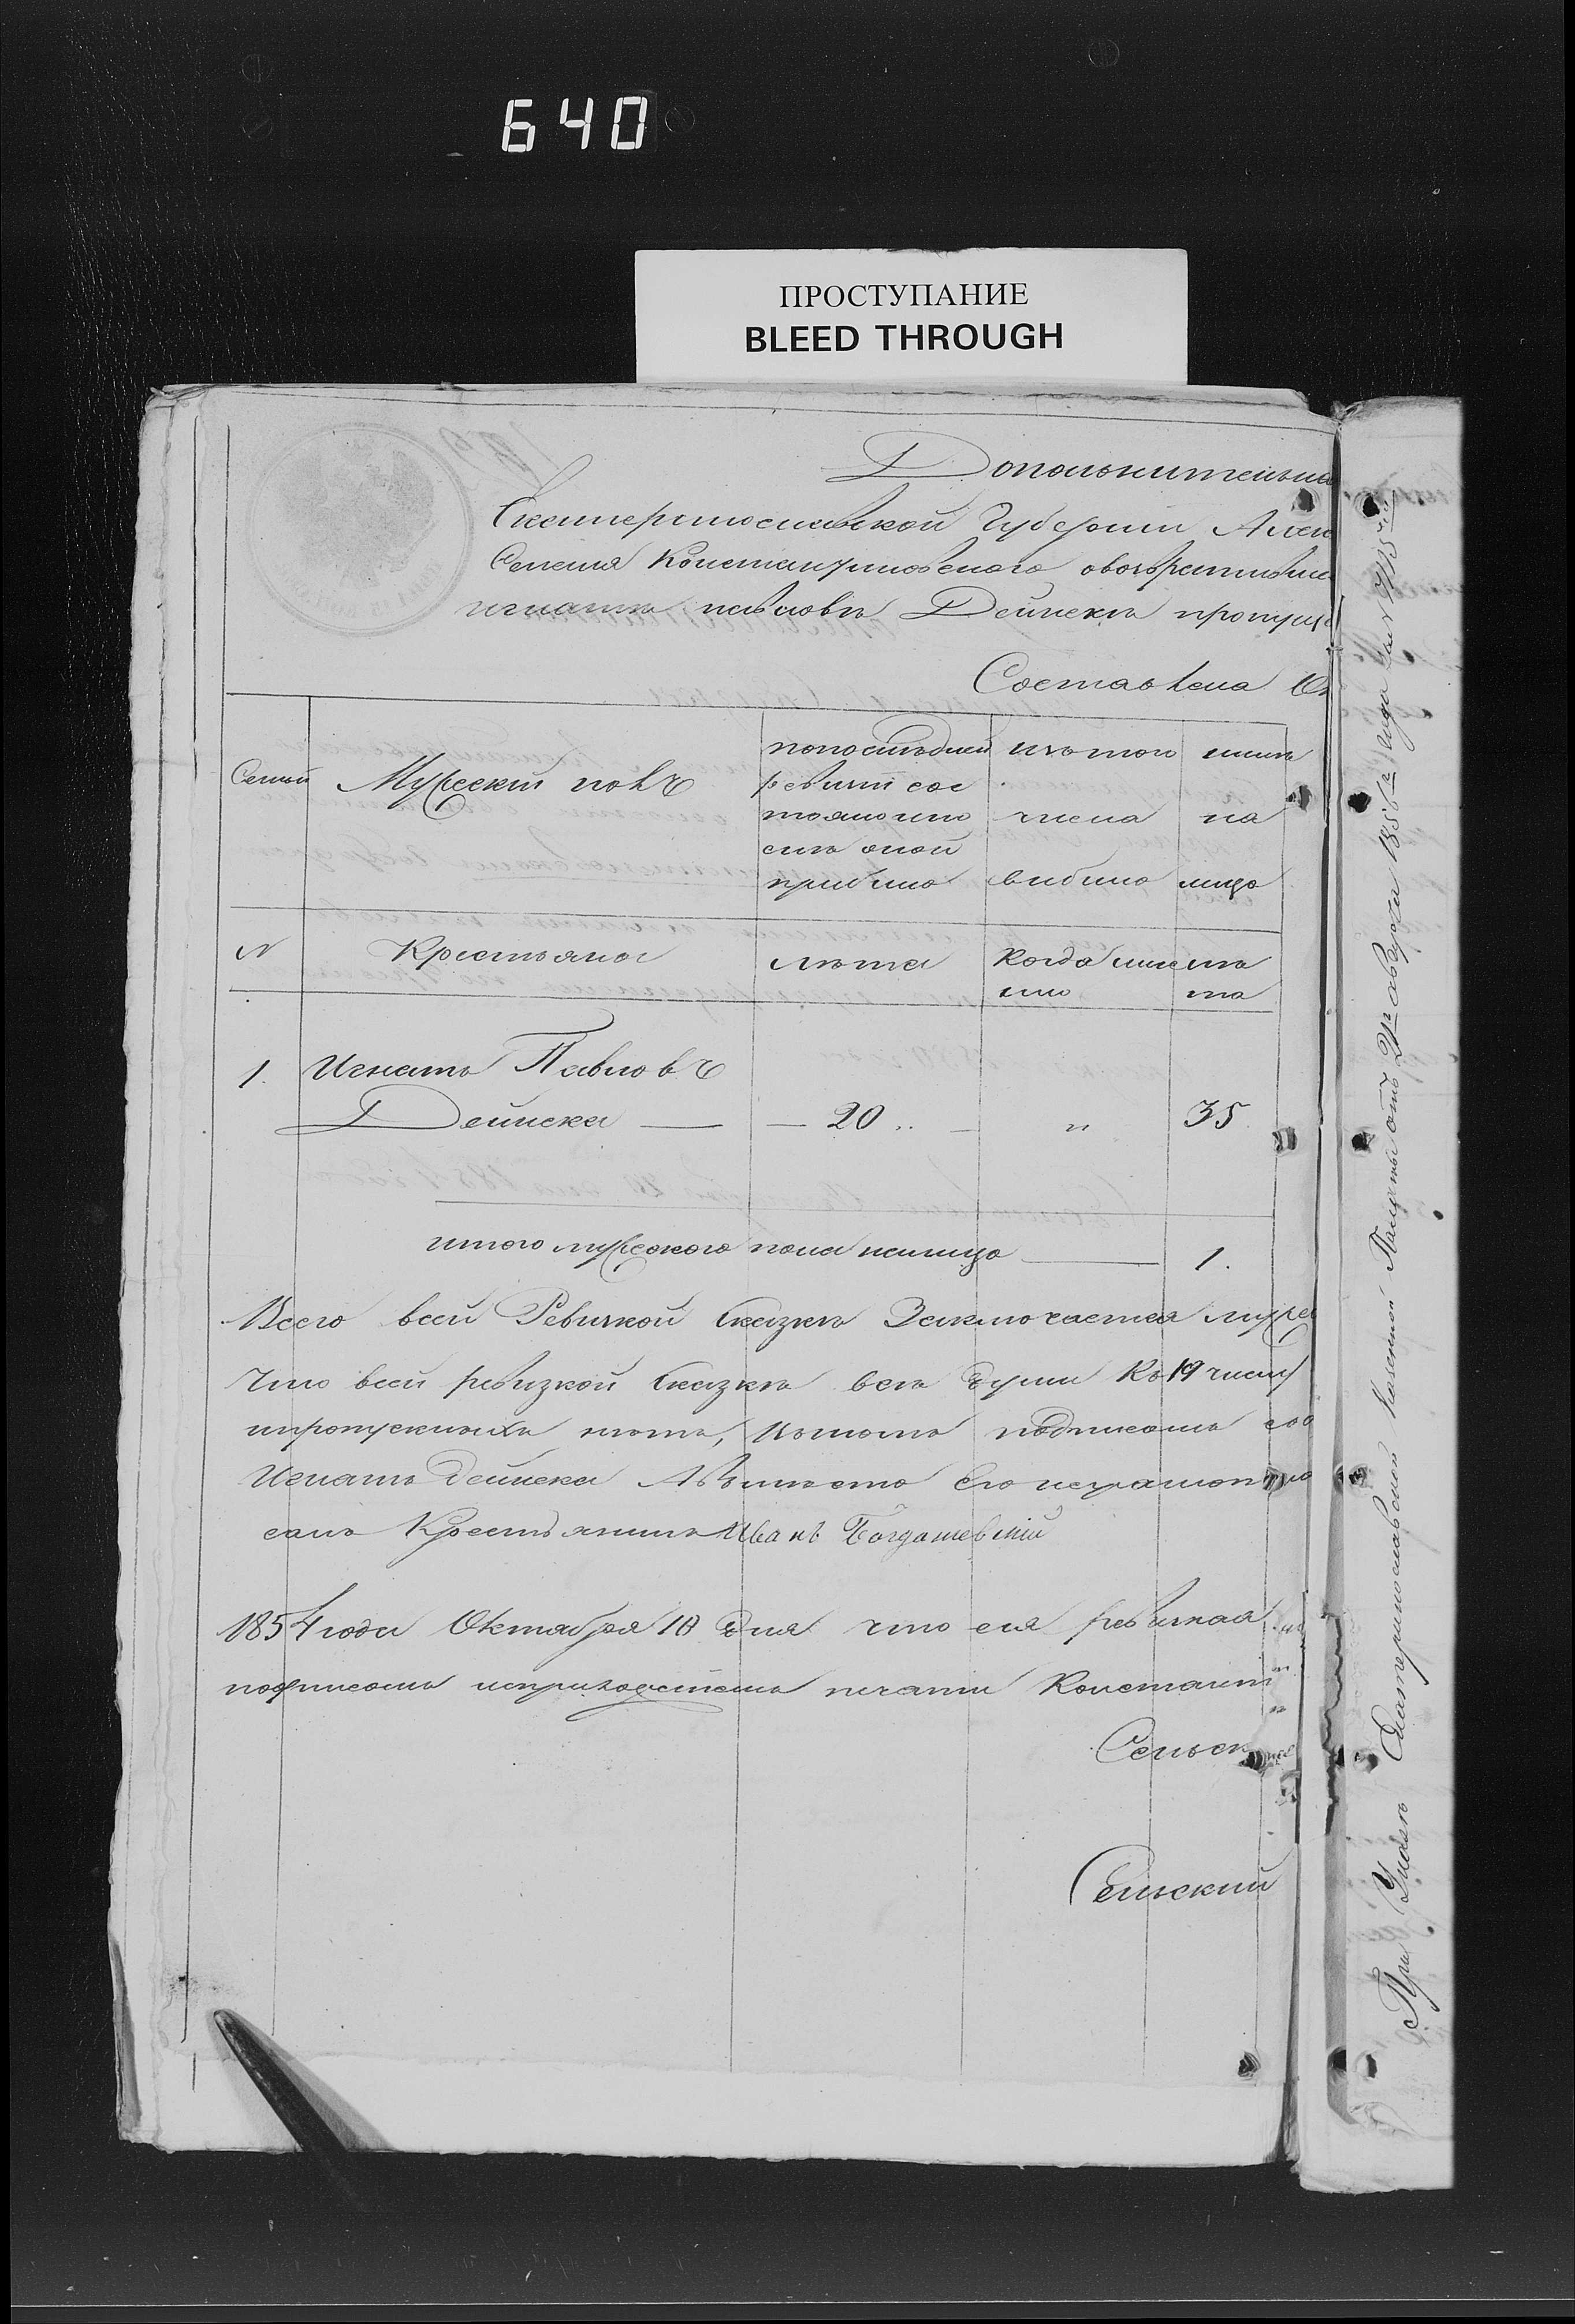 640
ПРОСТУПАНИЕ
BLEED THROUGH
Дополнительна
Екатеринославской Губернии Алек
Селения Константиновского
игнатъ павловъ Дейнека пропущ
Составлена Ок
Семьи
Мужескій полъ
попослѣдней
ревизіи сос
тояло или
слѣ оной
прибыло
изъ того
числа
выбыло
нинѣ
на
лицо
N
Крестьяна
лѣта
Когда имен
но
лѣ
та
1.
Игнатъ Павловъ
Дейнека — — 20 .. — " 35
итого мужеского пола налицо — 1.
Всего всей Ревизкой Сказкѣ Заключается муже
Что всей ревизкой Сказкѣ всѣ души Къ 19 числу
пропускныхъ нѣтъ, вътомъ подписомъ
Игнатъ Дейнека Авместо Его неграмотного
салъ Крестьянинъ Иванъ Богдашевскій
1854 года Октября 10 дня что сія ревизкая
подписомъ иприложениемъ печати Константи
Сельск
Сельский
При Указѣ Екатеринославской Казенной Палаты отъ 21го августа 1856го года за №